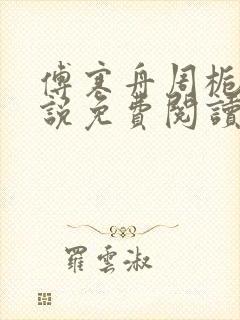 傅寒舟周栀
說免費閱讀
羅雲淑